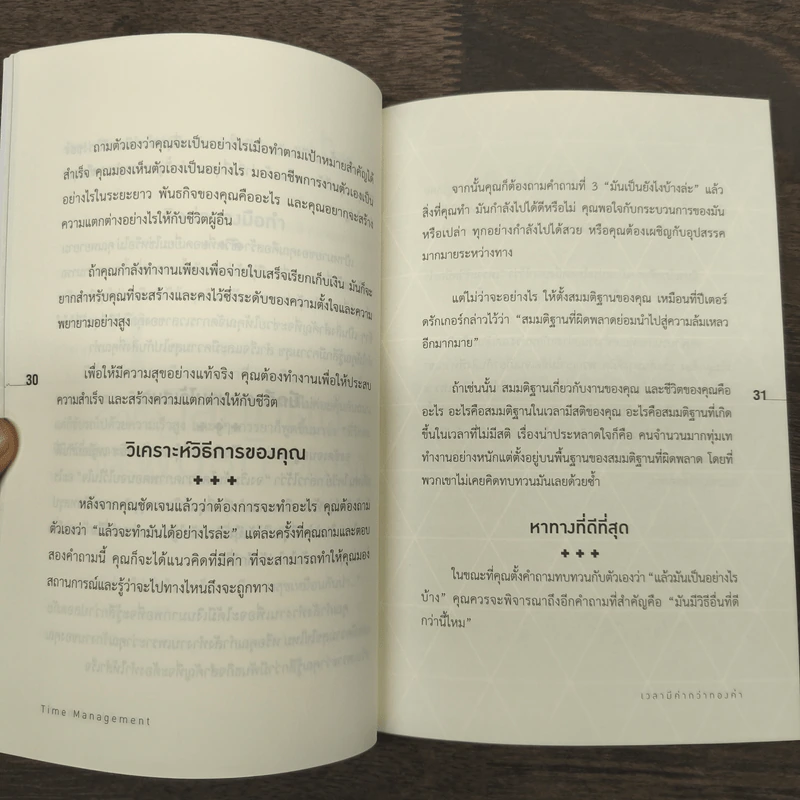 ถามตัวเองว่าคุณจะเป็นอย่างไรเมื่อทำตามเป้าหมายสำคัญได้
สำเร็จ คุณมองเห็นตัวเองเป็นอย่างไร มองอาชีพการงานตัวเองเป็น
อย่างไรในระยะยาว พันธกิจของคุณคืออะไร และคุณอยากจะสร้าง
ความแตกต่างอย่างไรให้กับชีวิตผู้อื่น
ถ้าคุณกำลังทำงานเพียงเพื่อจ่ายใบเสร็จเรียกเก็บเงิน มันก็จะ
ยากสำหรับคุณที่จะสร้างและคงไว้ซึ่งระดับของความตั้งใจและความ
พยายามอย่างสูง
30
เพื่อให้มีความสุขอย่างแท้จริง คุณต้องทำงานเพื่อให้ประสบ
ความสำเร็จ และสร้างความแตกต่างให้กับชีวิต
วิเคราะห์วิธีการของคุณ
+++
หลังจากคุณชัดเจนแล้วว่าต้องการจะทำอะไร คุณต้องถาม
ตัวเองว่า “แล้วจะทำมันได้อย่างไรล่ะ” แต่ละครั้งที่คุณถามและตอบ
สองคำถามนี้ คุณก็จะได้แนวคิดที่มีค่า ที่จะสามารถทำให้คุณมอง
สถานการณ์และรู้ว่าจะไปทางไหนถึงจะถูกทาง
Time Management
จากนั้นคุณก็ต้องถามคำถามที่ 3 “มันเป็นยังไงบ้างล่ะ” แล้ว
สิ่งที่คุณทำ มันกำลังไปได้ดีหรือไม่ คุณพอใจกับกระบวนการของมัน
หรือเปล่า ทุกอย่างกำลังไปได้สวย หรือคุณต้องเผชิญกับอุปสรรค
มากมายระหว่างทาง
แต่ไม่ว่าจะอย่างไร ให้ตั้งสมมติฐานของคุณ เหมือนที่ปีเตอร์
ดรักเกอร์กล่าวไว้ว่า “สมมติฐานที่ผิดพลาดย่อมนำไปสู่ความล้มเหลว
อีกมากมาย”
ถ้าเช่นนั้น สมมติฐานเกี่ยวกับงานของคุณ และชีวิตของคุณคือ
31
อะไร อะไรคือสมมติฐานในเวลามีสติของคุณ อะไรคือสมมติฐานที่เกิด
ขึ้นในเวลาที่ไม่มีสติ เรื่องน่าประหลาดใจก็คือ คนจำนวนมากทุ่มเท
ทำงานอย่างหนักแต่ตั้งอยู่บนพื้นฐานของสมมติฐานที่ผิดพลาด โดยที่
พวกเขาไม่เคยคิดทบทวนมันเลยด้วยซ้ำ
หาทางที่ดีที่สุด
+++
ในขณะที่คุณตั้งคำถามทบทวนกับตัวเองว่า “แล้วมันเป็นอย่างไร
บ้าง” คุณควรจะพิจารณาถึงอีกคำถามที่สำคัญคือ “มันมีวิธีอื่นที่ดี
กว่านี้ไหม”
เวลามีค่ากว่าทองคำ